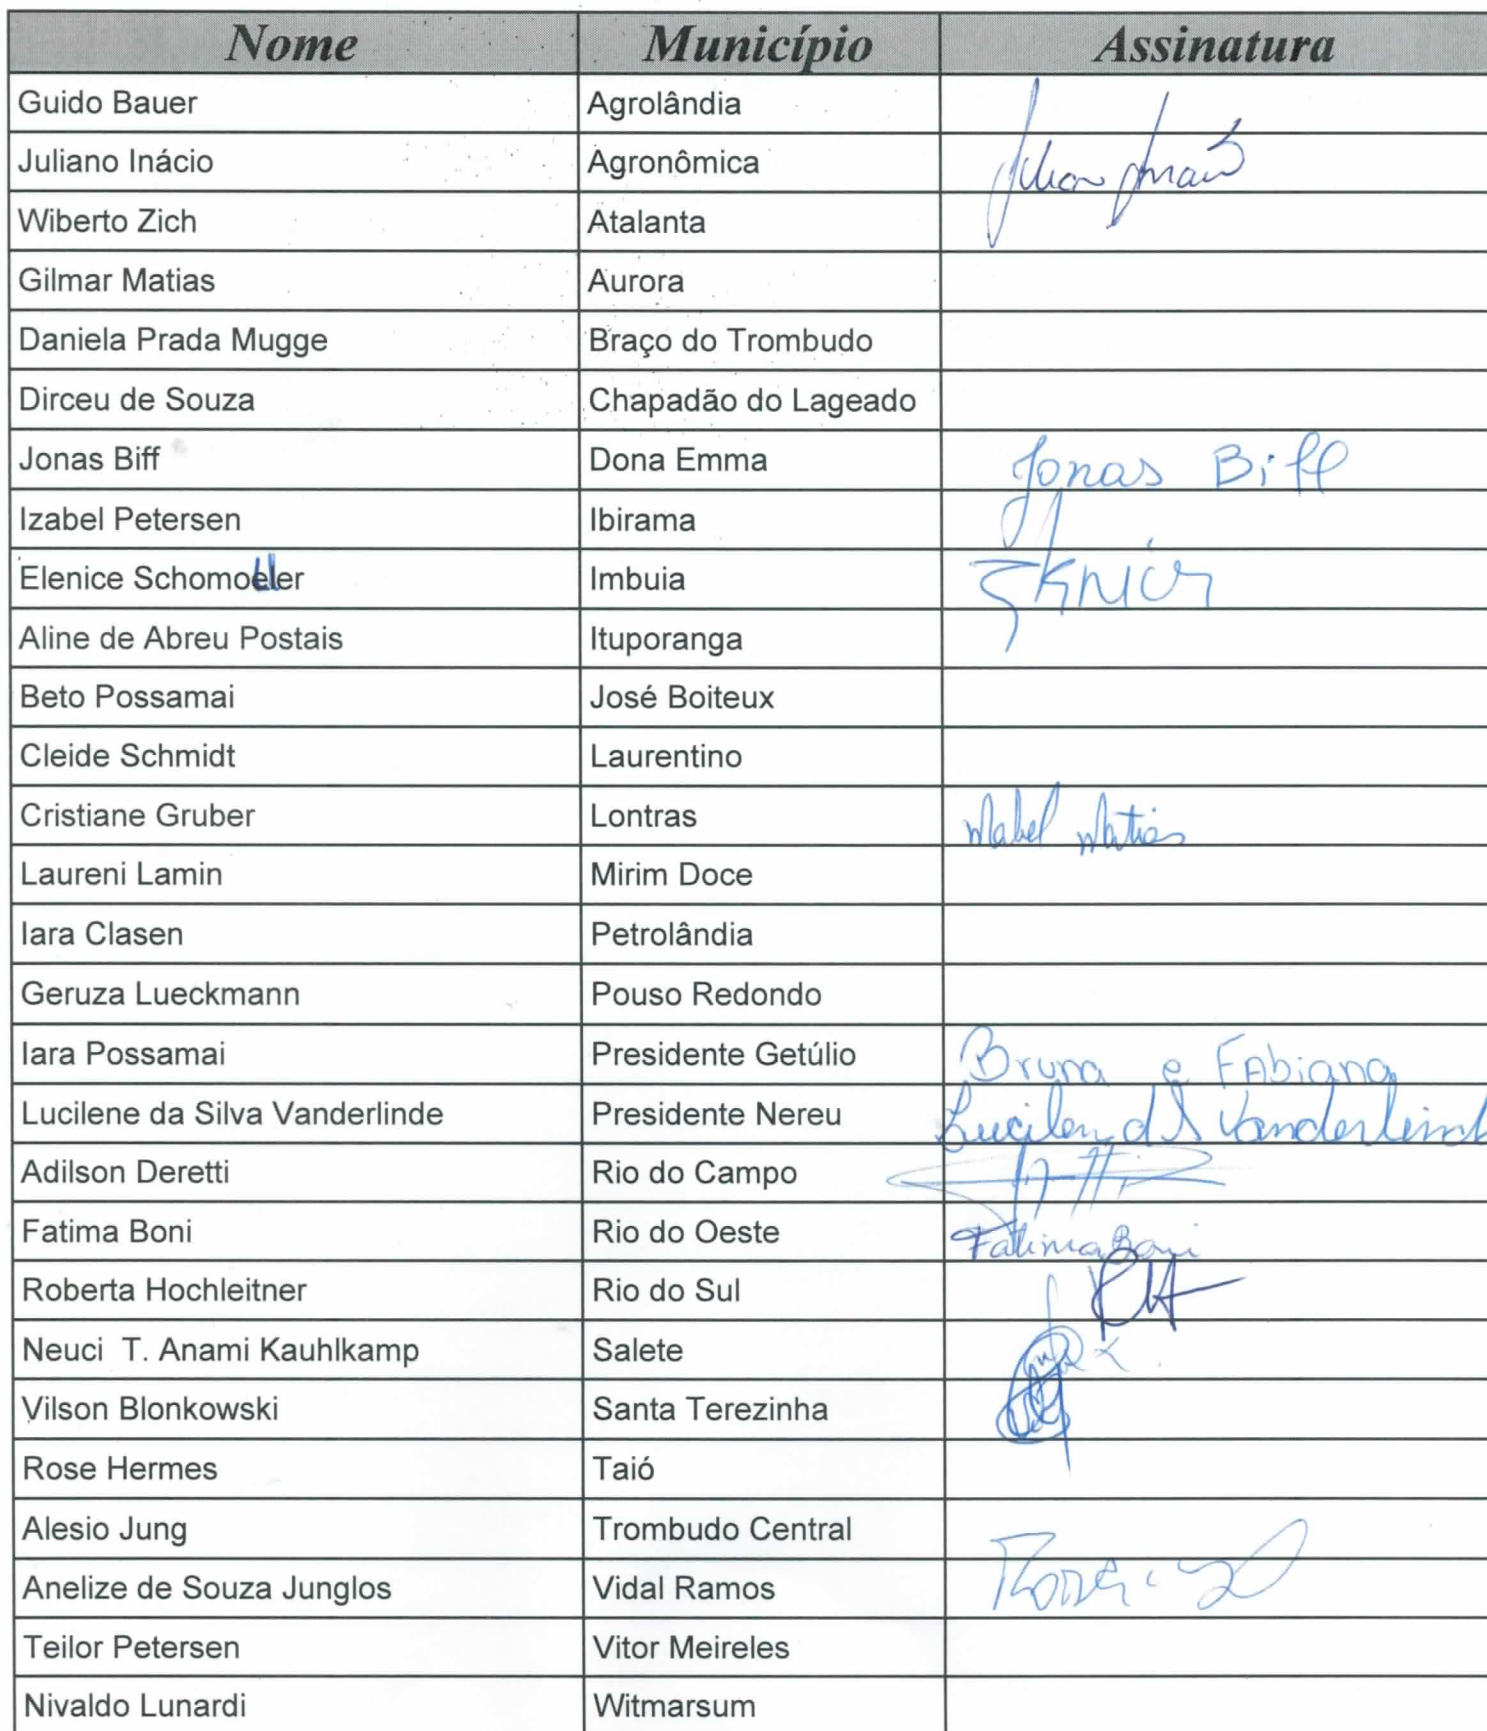 Nome Município Assinatura
Guido Bauer Agrolândia
Juliano Inácio Agronômica
Wiberto Zich Atalanta
Gilmar Matias Aurora
Daniela Prada Mugge Braço do Trombudo
Dirceu de Souza Chapadão do Lageado
Jonas Biff Dona Emma Jonas Biff
Izabel Petersen Ibirama
Elenice Schomoeller Imbuia
Aline de Abreu Postais Ituporanga
Beto Possamai José Boiteux
Cleide Schmidt Laurentino
Cristiane Gruber Lontras Mabel Matias
Laureni Lamin Mirim Doce
Iara Clasen Petrolândia
Geruza Lueckmann Pouso Redondo
Iara Possamai Presidente Getúlio Bruna e FAbiana
Lucilene da Silva Vanderlinde Presidente Nereu
Adilson Deretti Rio do Campo
Fatima Boni Rio do Oeste Fatima Boni
Roberta Hochleitner Rio do Sul
Neuci T. Anami Kauhlkamp Salete
Vilson Blonkowski Santa Terezinha
Rose Hermes Taió
Alesio Jung Trombudo Central
Anelize de Souza Junglos Vidal Ramos
Teilor Petersen Vitor Meireles
Nivaldo Lunardi Witmarsum